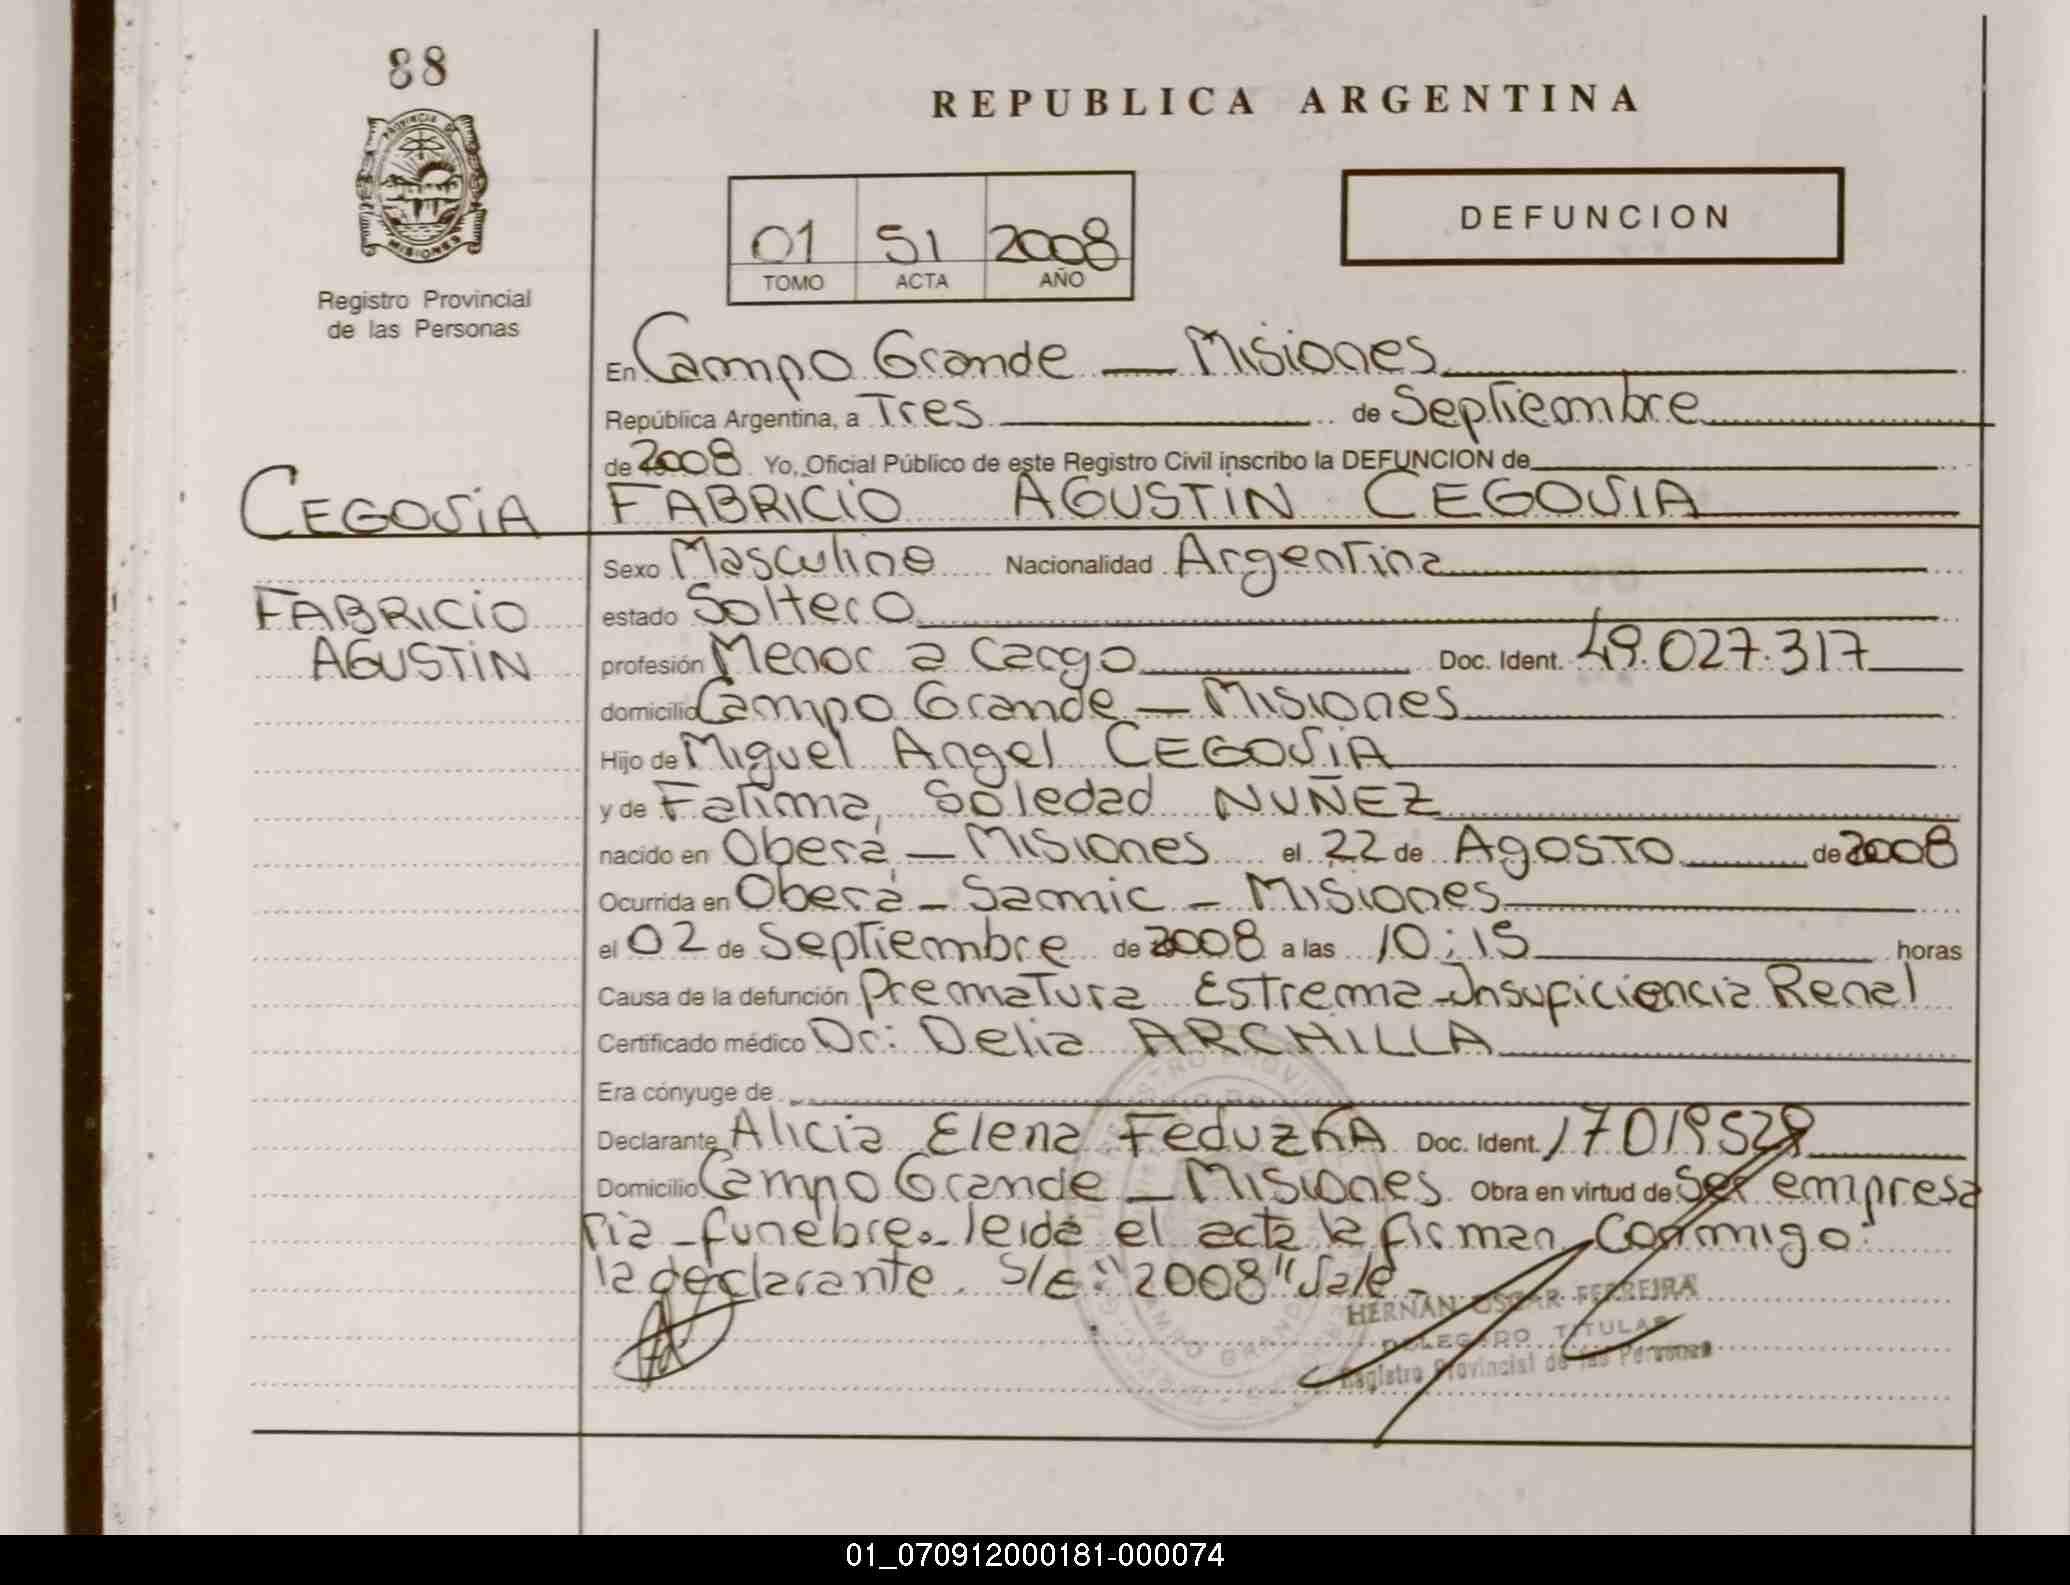 88
REPUBLICA ARGENTINA
PROVINCIA DE
MISIONES
Registro Provincial
de las Personas
01 51 2008
TOMO ACTA AÑO
DEFUNCION
En Campo Grande — Misiones
República Argentina, a Tres de Septiembre
de 2008 Yo, Oficial Público de este Registro Civil inscribo la DEFUNCION de
CEGOVIA
FABRICIO
AGUSTIN
FABRICIO AGUSTIN CEGOVIA
Sexo Masculino Nacionalidad Argentina
estado Soltero
profesión Menor a cargo Doc. Ident. 49.027.317
domicilio Campo Grande — Misiones
Hijo de Miguel Angel CEGOVIA
y de Fatima, Soledad NUÑEZ
nacido en Oberá — Misiones el 22 de Agosto de 2008
Ocurrida en Oberá - Samic - Misiones
el 02 de Septiembre de 2008 a las 10:15 horas
Causa de la defunción Prematura Estrema - Insuficiencia Renal
Certificado médico Dr: Delia ARCHILLA
Era cónyuge de
Declarante Alicia Elena FEDUZKA Doc. Ident. 17019529
Domicilio Campo Grande — Misiones Obra en virtud de ser empresa
ria funebre. leida el acta la firman conmigo
la declarante. S/E: "2008" Vale -
HERNAN OSCAR FERREIRA
DELEGADO TITULAR
Registro Provincial de las Personas
01_070912000181-000074